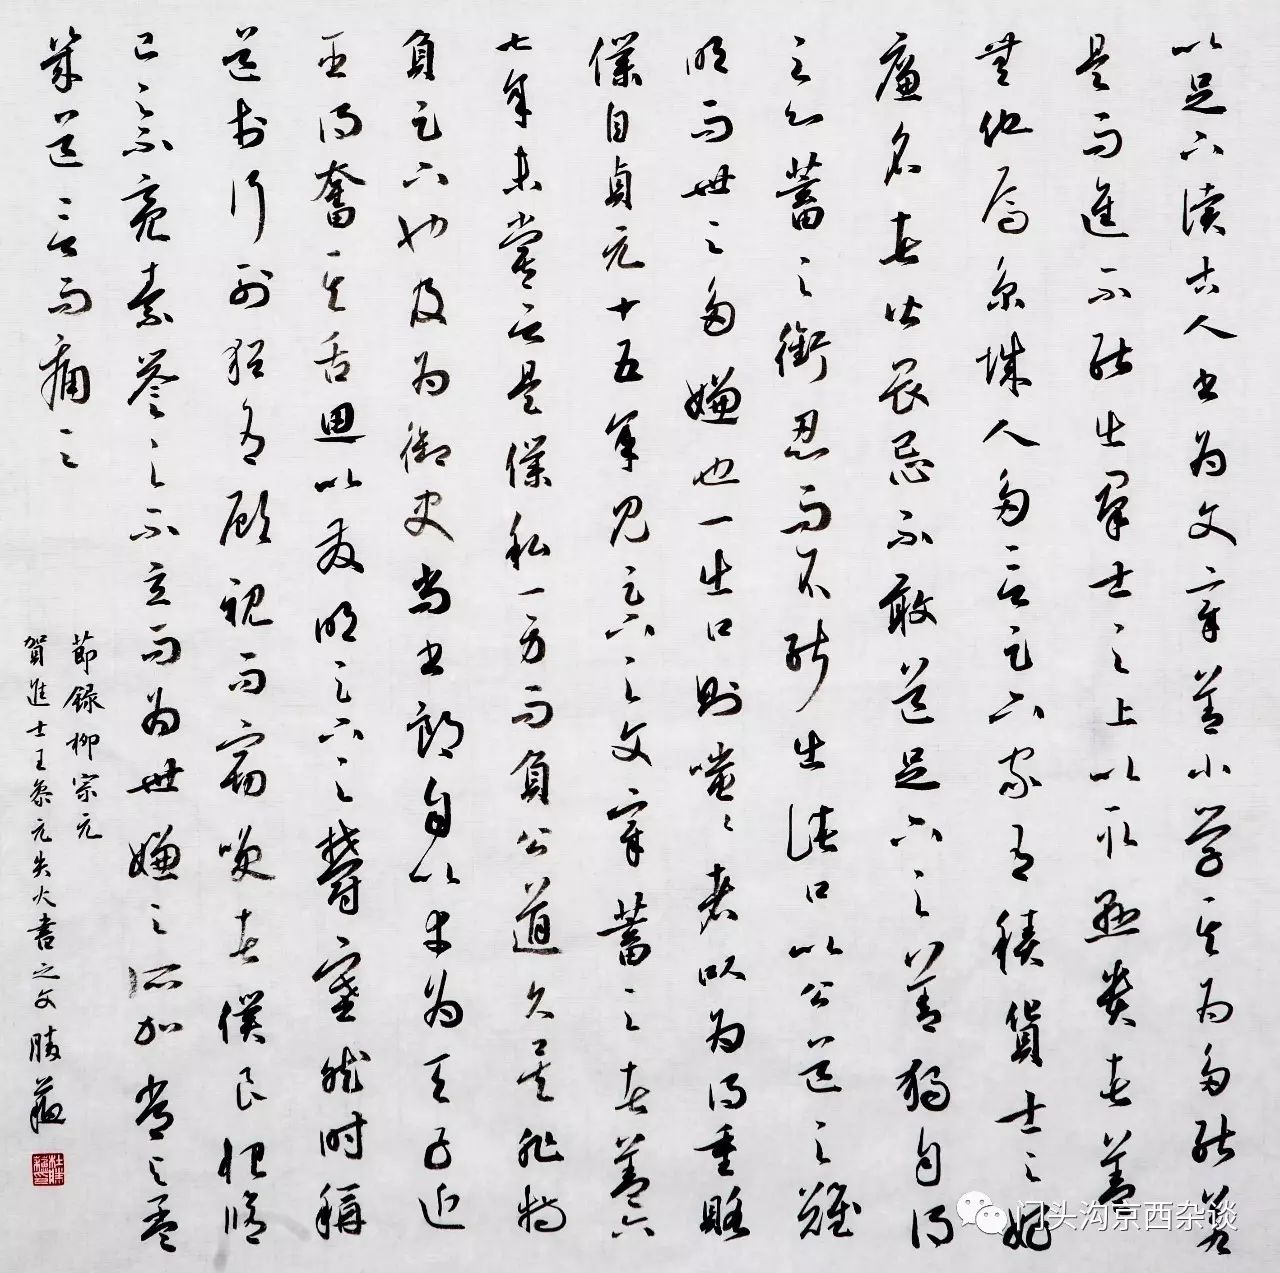 以足下讀古人書為文章善小學其為多能若
是而進不能出羣士之上以取顯貴者蓋
無他焉京城人多言足下家有積貨士之好
廉名者皆畏忌不敢道足下之善獨自得
之心蓄之銜忍而不能出諸口以公道之難
明而世之多嫌也一出口則嗤嗤者以為得重賂
僕自貞元十五年見足下之文章蓄之者蓋六
七年未嘗言是僕私一身而負公道久矣非特
負足下也及為御史尚書郎自以幸為天子近
臣得奮其舌思以發明足下之鬱塞然時稱
道於行列猶有顧視而竊笑者僕良恨脩
己之不亮素譽之不立而為世嫌之所加常與孟
幾道言而痛之
節錄柳宗元
賀進士王參元失火書之文勝蘊
门头沟京西杂谈